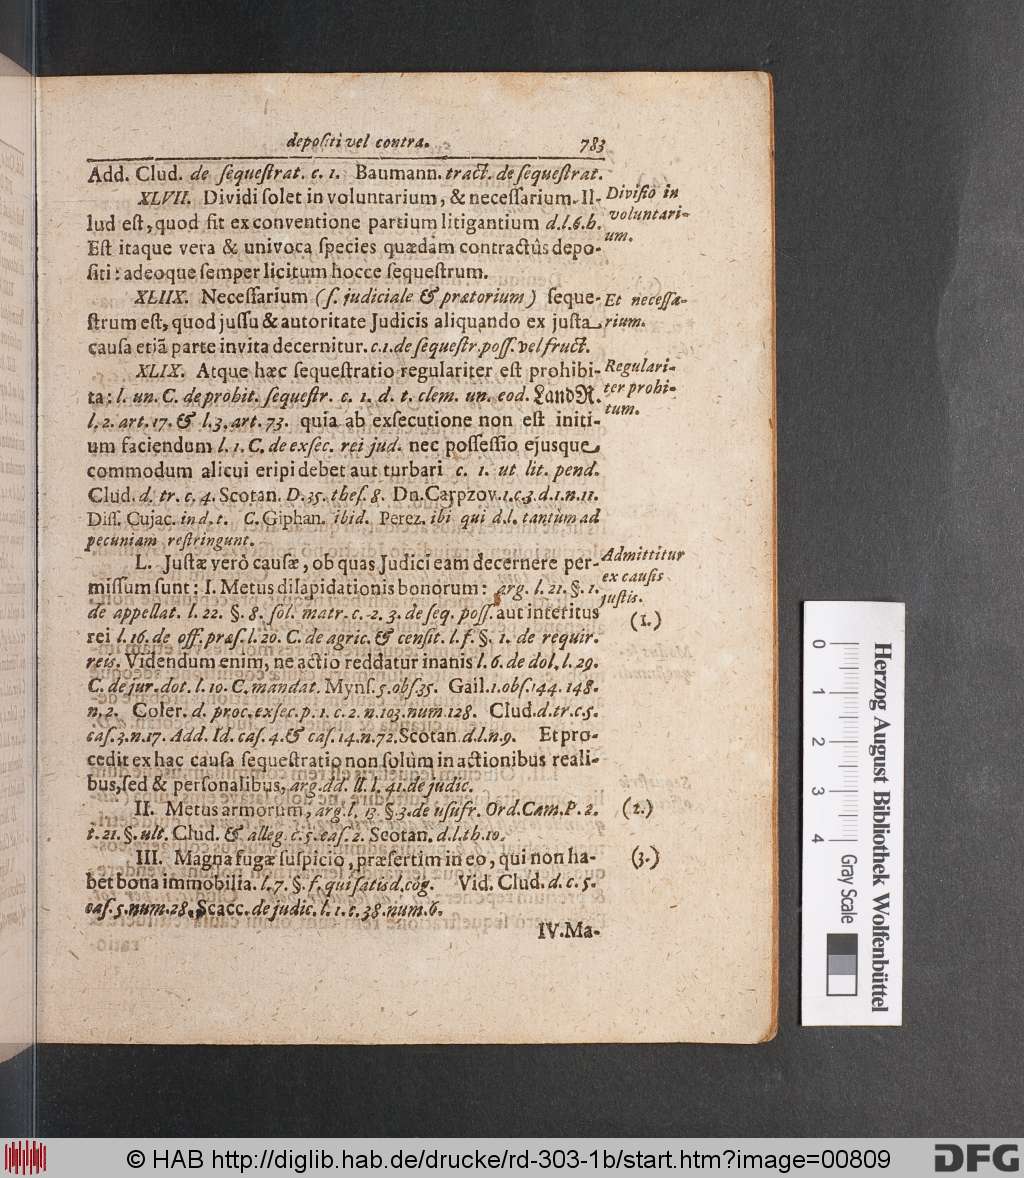 depoſiti vel contra. 783
Add. Clud. de ſequeſtrat. c. 1. Baumann. tract. de ſequeſtrat.
XLVII. Dividi ſolet in voluntarium, & neceſſarium. Il-
lud eſt, quod fit ex conventione partium litigantium d.l.6.h.
Eſt itaque vera & univoca ſpecies quædam contractûs depo-
ſiti: adeoque ſemper licitum hocce ſequeſtrum.
Diviſio in
voluntari-
um.
XLIIX. Neceſſarium (ſ. judiciale & prætorium) ſeque-
ſtrum eſt, quod juſſu & autoritate Judicis aliquando ex juſta
cauſa etiã parte invita decernitur. c.1. de ſequeſtr. poſſ. vel fruct.
Et neceſſa-
rium.
XLIX. Atque hæc ſequeſtratio regulariter eſt prohibi-
ta: l. un. C. de prohib. ſequeſtr. c. 1. d. t. clem. un. eod. LandR.
l. 2. art. 17. & l. 3. art. 73. quia ab exſecutione non eſt initi-
um faciendum l. 1. C. de exſec. rei jud. nec poſſeſſio ejusque
commodum alicui eripi debet aut turbari c. 1. ut lit. pend.
Clud. d. tr. c. 4. Scotan. D. 35. theſ. 8. Dn. Carpzov. 1. c. 3. d. 1. n. 11.
Diſſ. Cujac. in d. t. C. Giphan. ibid. Perez. ibi qui d. l. tantùm ad
pecuniam reſtringunt.
Regulari-
ter prohi-
tum.
L. Juſtæ verò cauſæ, ob quas Judici eam decernere per-
miſſum ſunt: I. Metus dilapidationis bonorum: arg. l. 21. §. 1.
de appellat. l. 22. §. 8. ſol. matr. c. 2. 3. de ſeq. poſſ. aut interitus
rei l. 16. de off. præſ. l. 20. C. de agric. & cenſit. l. f. §. 1. de requir.
reis. Videndum enim, ne actio reddatur inanis l. 6. de dol. l. 29.
C. de jur. dot. l. 10. C. mandat. Mynſ. 5. obſ. 35. Gail. 1. obſ. 144. 148.
n. 2. Coler. d. proc. exſec. p. 1. c. 2. n. 103. num. 128. Clud. d. tr. c. 5.
caſ. 3. n. 17. Add. Id. caſ. 4. & caſ. 14. n. 72. Scotan. d. l. n. 9. Et pro-
cedit ex hac cauſa ſequeſtratio non ſolùm in actionibus reali-
bus, ſed & perſonalibus, arg. dd. ll. l. 41. de judic.
Admittitur
ex cauſis
juſtis.
(1.)
II. Metus armorum, arg. l. 13. §. 3. de uſufr. Ord. Cam. P. 2.
t. 21. §. ult. Clud. & alleg. c. 5. caſ. 2. Scotan. d. l. th. 10.
(2.)
III. Magna fugæ ſuſpicio, præſertim in eo, qui non ha-
bet bona immobilia. l. 7. §. f. qui ſatisd. cog. Vid. Clud. d. c. 5.
caſ. 5. num. 28. Scacc. de judic. l. 1. c. 38. num. 6.
(3.)
IV. Ma-
0 1 2 3 4 Gray Scale
Herzog August Bibliothek Wolfenbüttel
© HAB http://diglib.hab.de/drucke/rd-303-1b/start.htm?image=00809
DFG